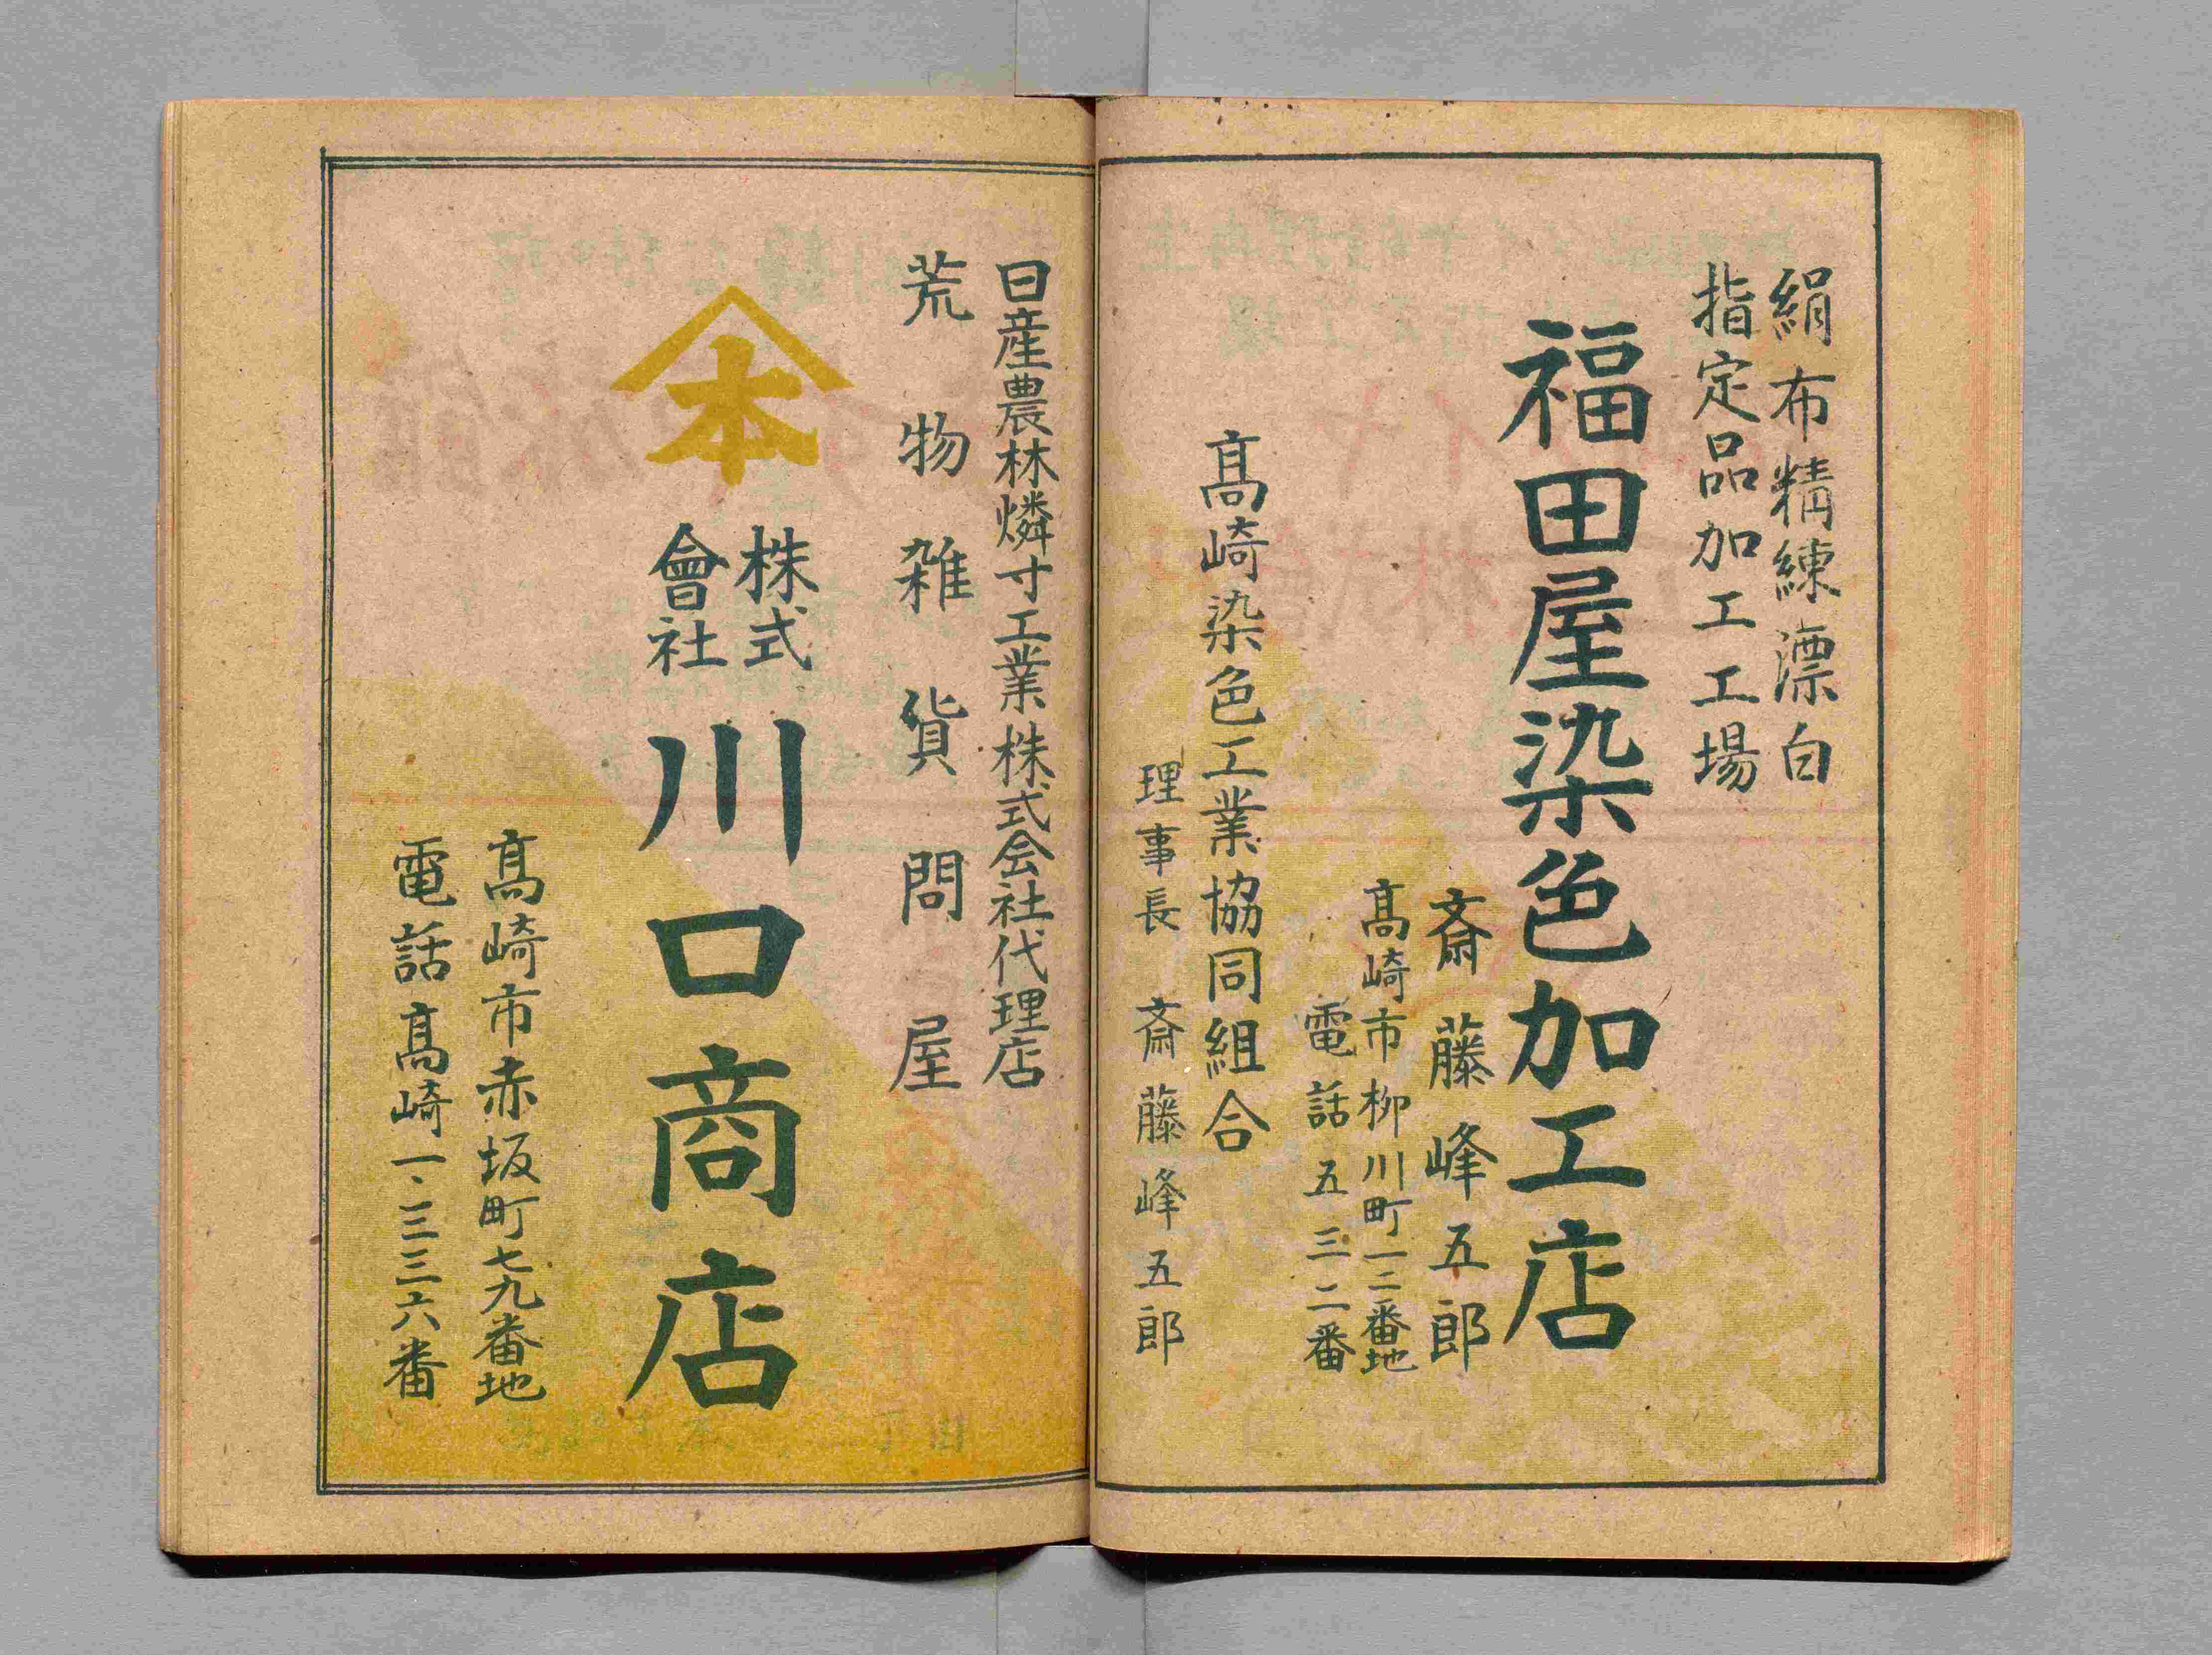 絹布精練漂白
指定品加工工場
福田屋染色加工店
斎藤峰五郎
髙崎市柳川町一二番地
電話五三二番
髙崎染色工業協同組合
理事長 斎藤峰五郎
日産農林燐寸工業株式会社代理店
荒物雑貨問屋
本
株式
會社
川口商店
髙崎市赤坂町七九番地
電話髙崎一、三三六番